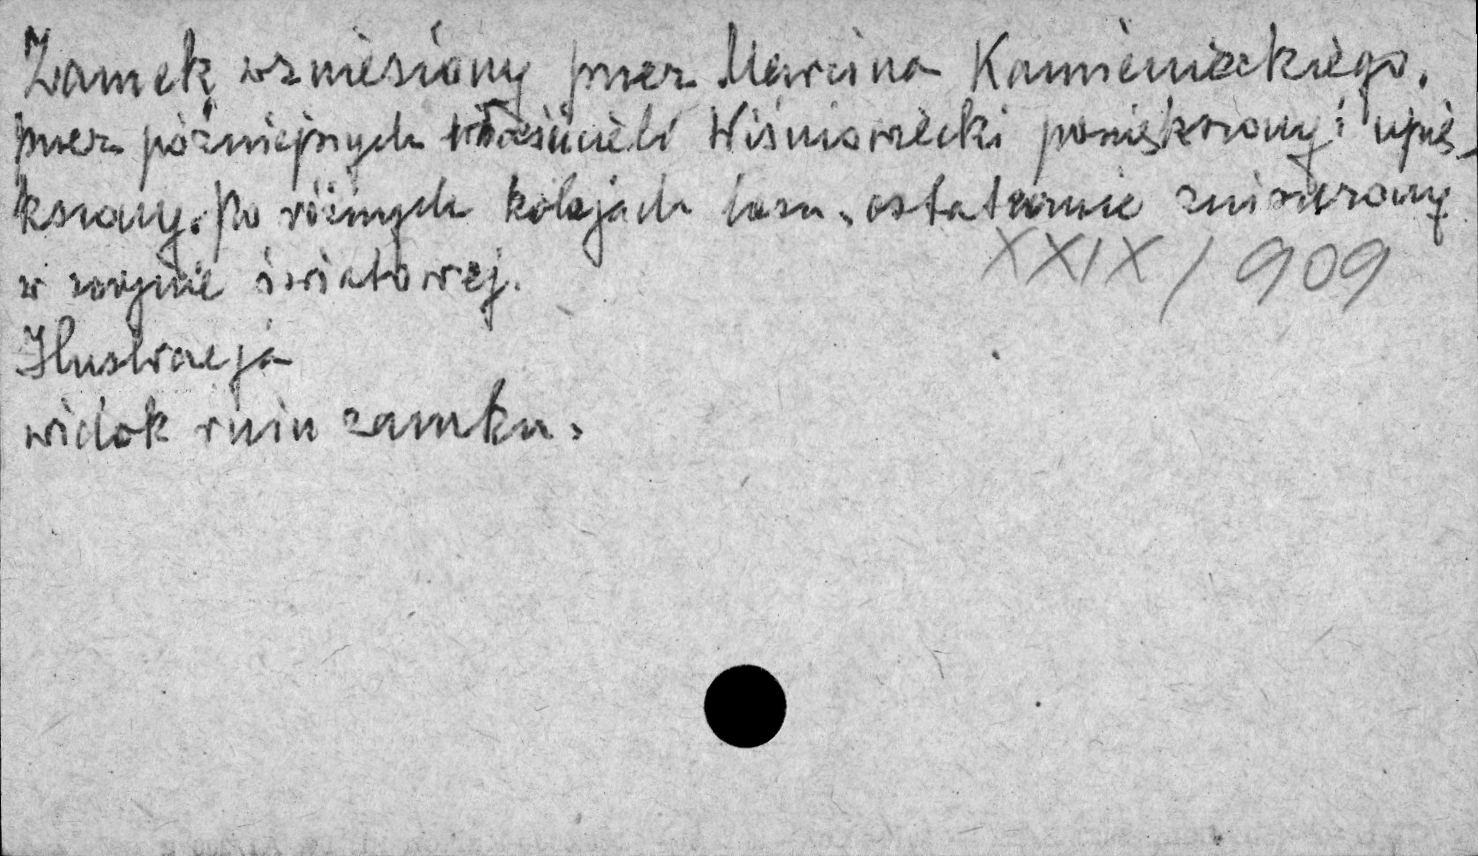 Zamek wzniesiony przez Marcina Kamienieckiego,
przez późniejszych właścicieli Wiśniowiecki powiększony i upięk-
kszony. Po różnych kolejach losu, ostatecznie zniszczony
w wojnie światowej.
XXIX / 909
Ilustracja
widok ruin zamku.